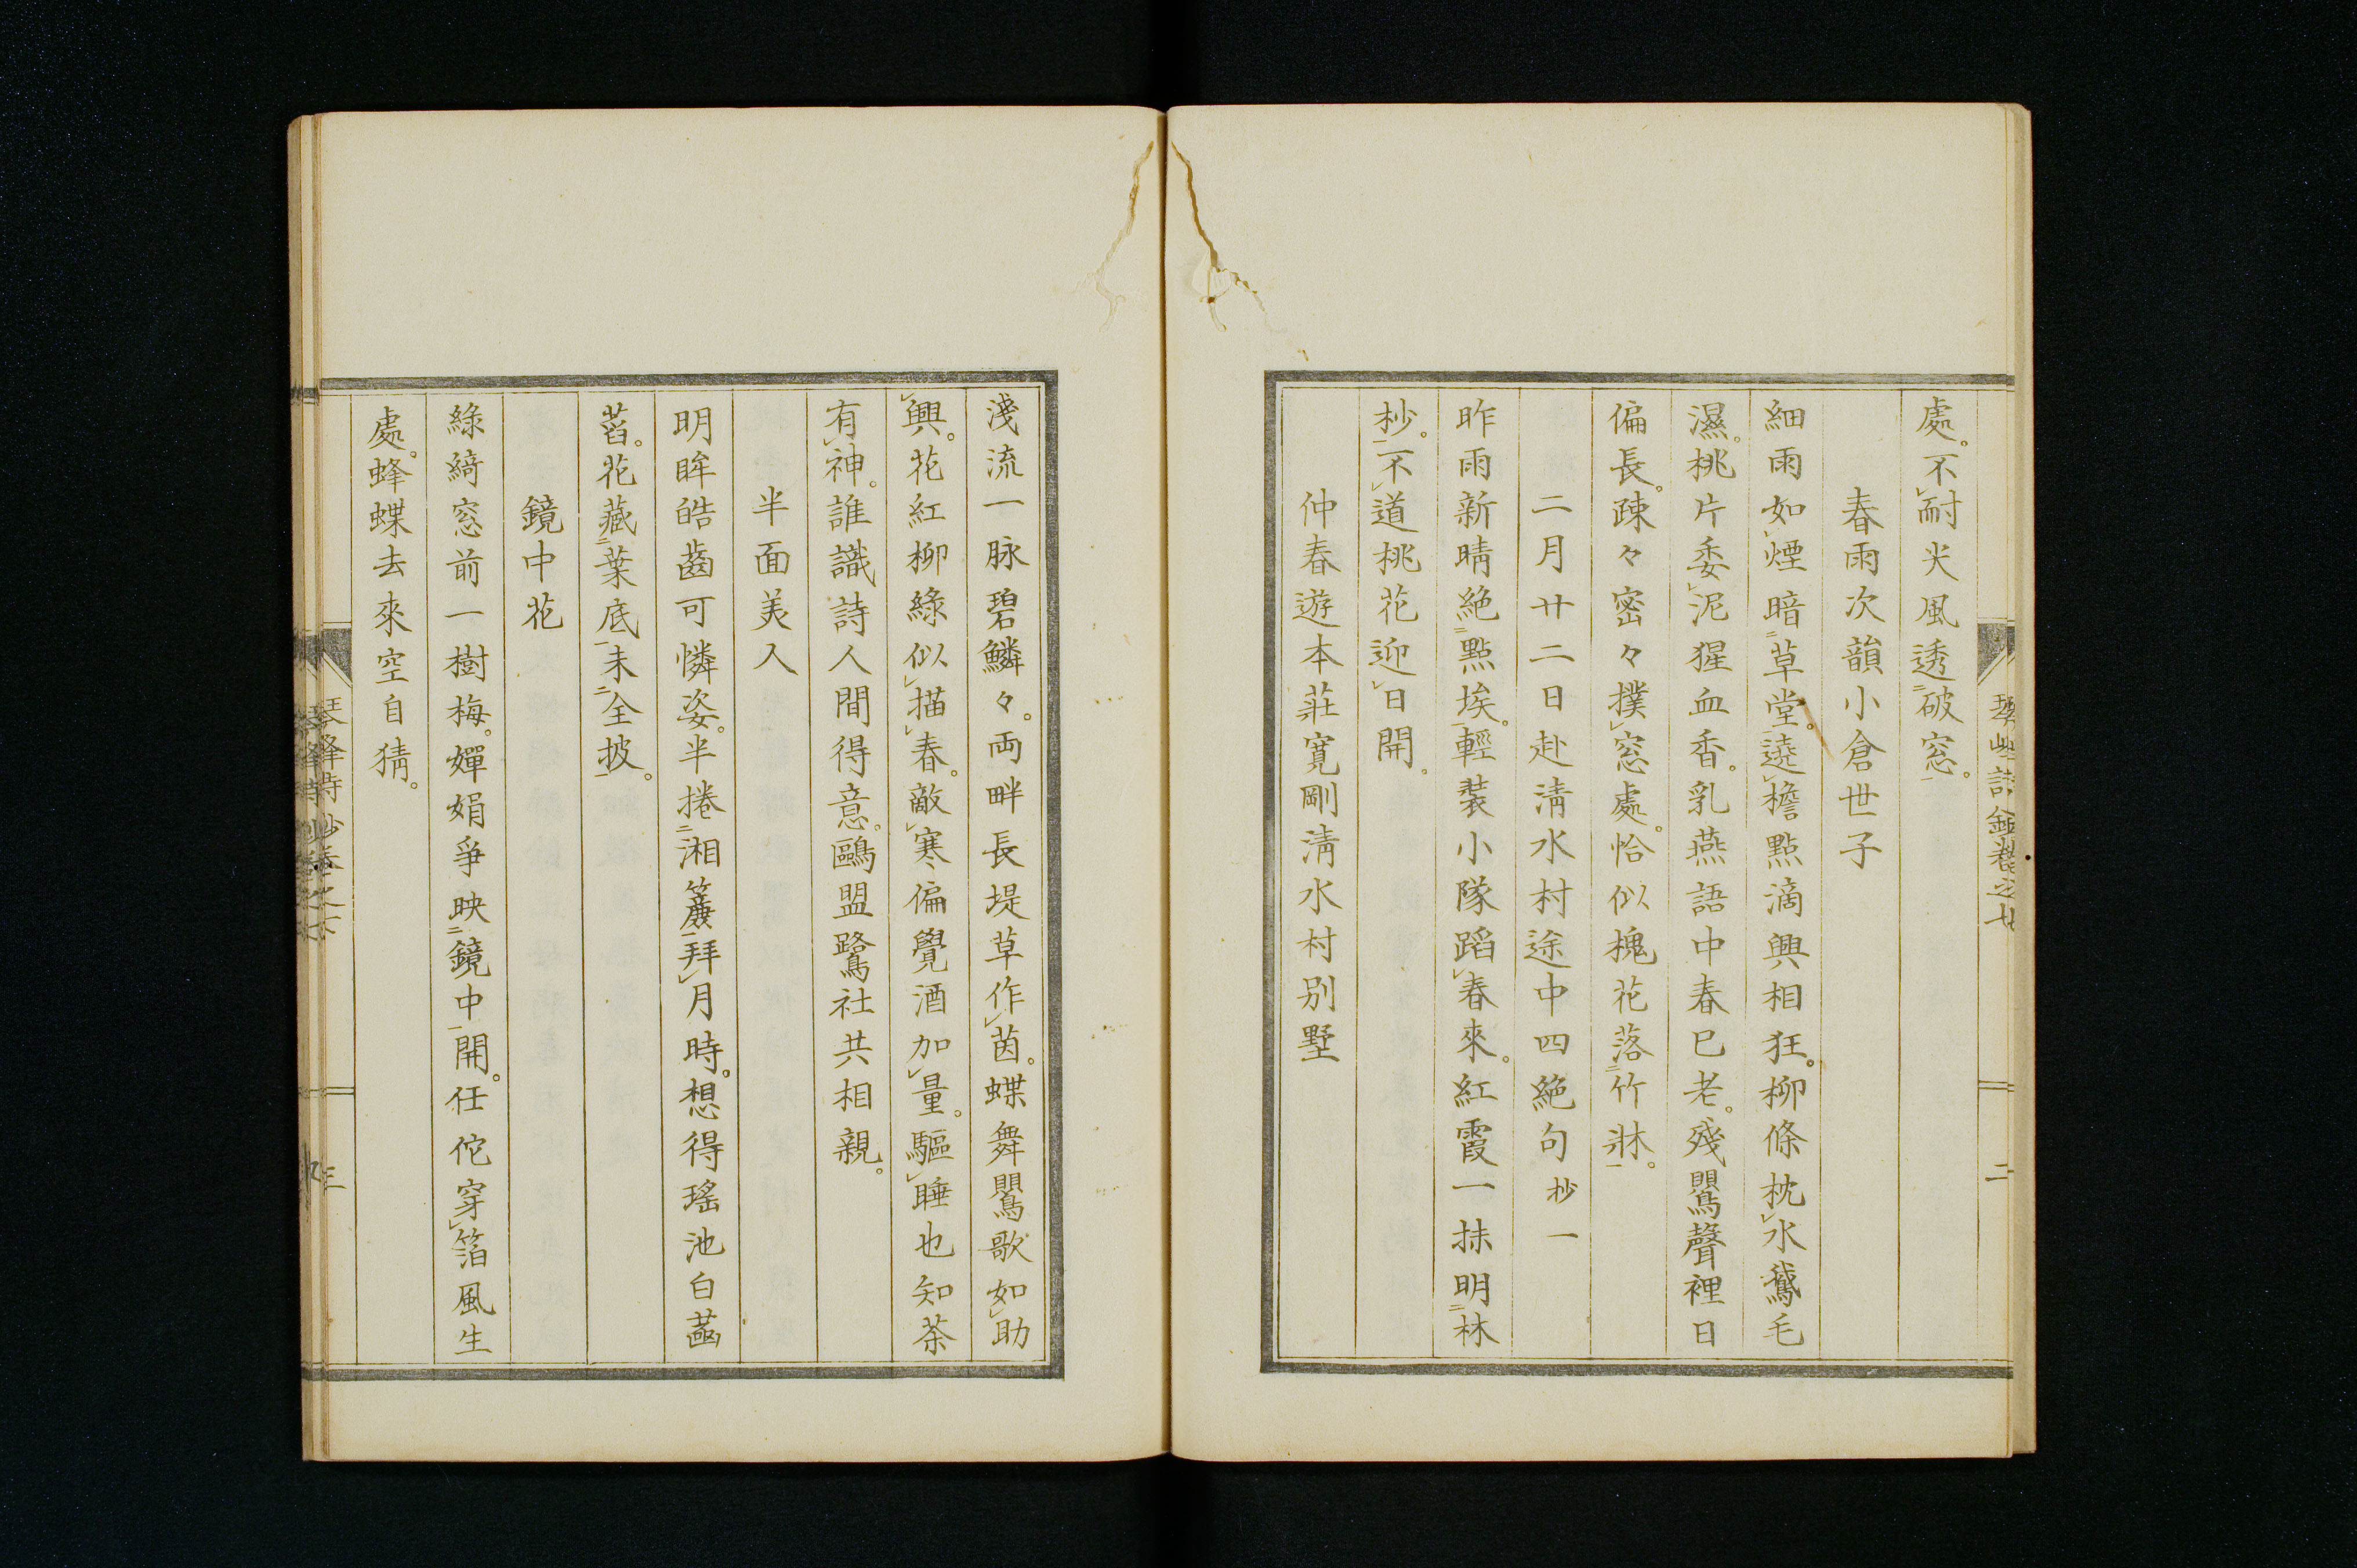 處。不耐尖風透破窓。
春雨次韻小倉世子
細雨如煙暗草堂。遶檐點滴興相狂。柳條枕水鵞毛
濕。桃片委泥猩血香。乳燕語中春已老。殘鸎聲裡日
偏長。疎々密々撲窓處。恰似槐花落竹牀。
二月廿二日赴清水村途中四絶句抄一
昨雨新晴絶點埃。輕裝小隊蹈春來。紅霞一抹明林
杪。不道桃花迎日開。
仲春遊本莊寛剛清水村別墅
淺流一脉碧鱗々。両畔長堤草作茵。蝶舞鸎歌如助
興。花紅柳綠似描春。敵寒偏覺酒加量。驅睡也知茶
有神。誰識詩人間得意。鷗盟鷺社共相親。
半面美人
明眸皓齒可憐姿。半捲湘簾拜月時。想得瑤池白菡
萏。花藏葉底未全披。
鏡中花
綠綺窓前一樹梅。嬋娟爭映鏡中開。任佗穿箔風生
處。蜂蝶去來空自猜。
三
二